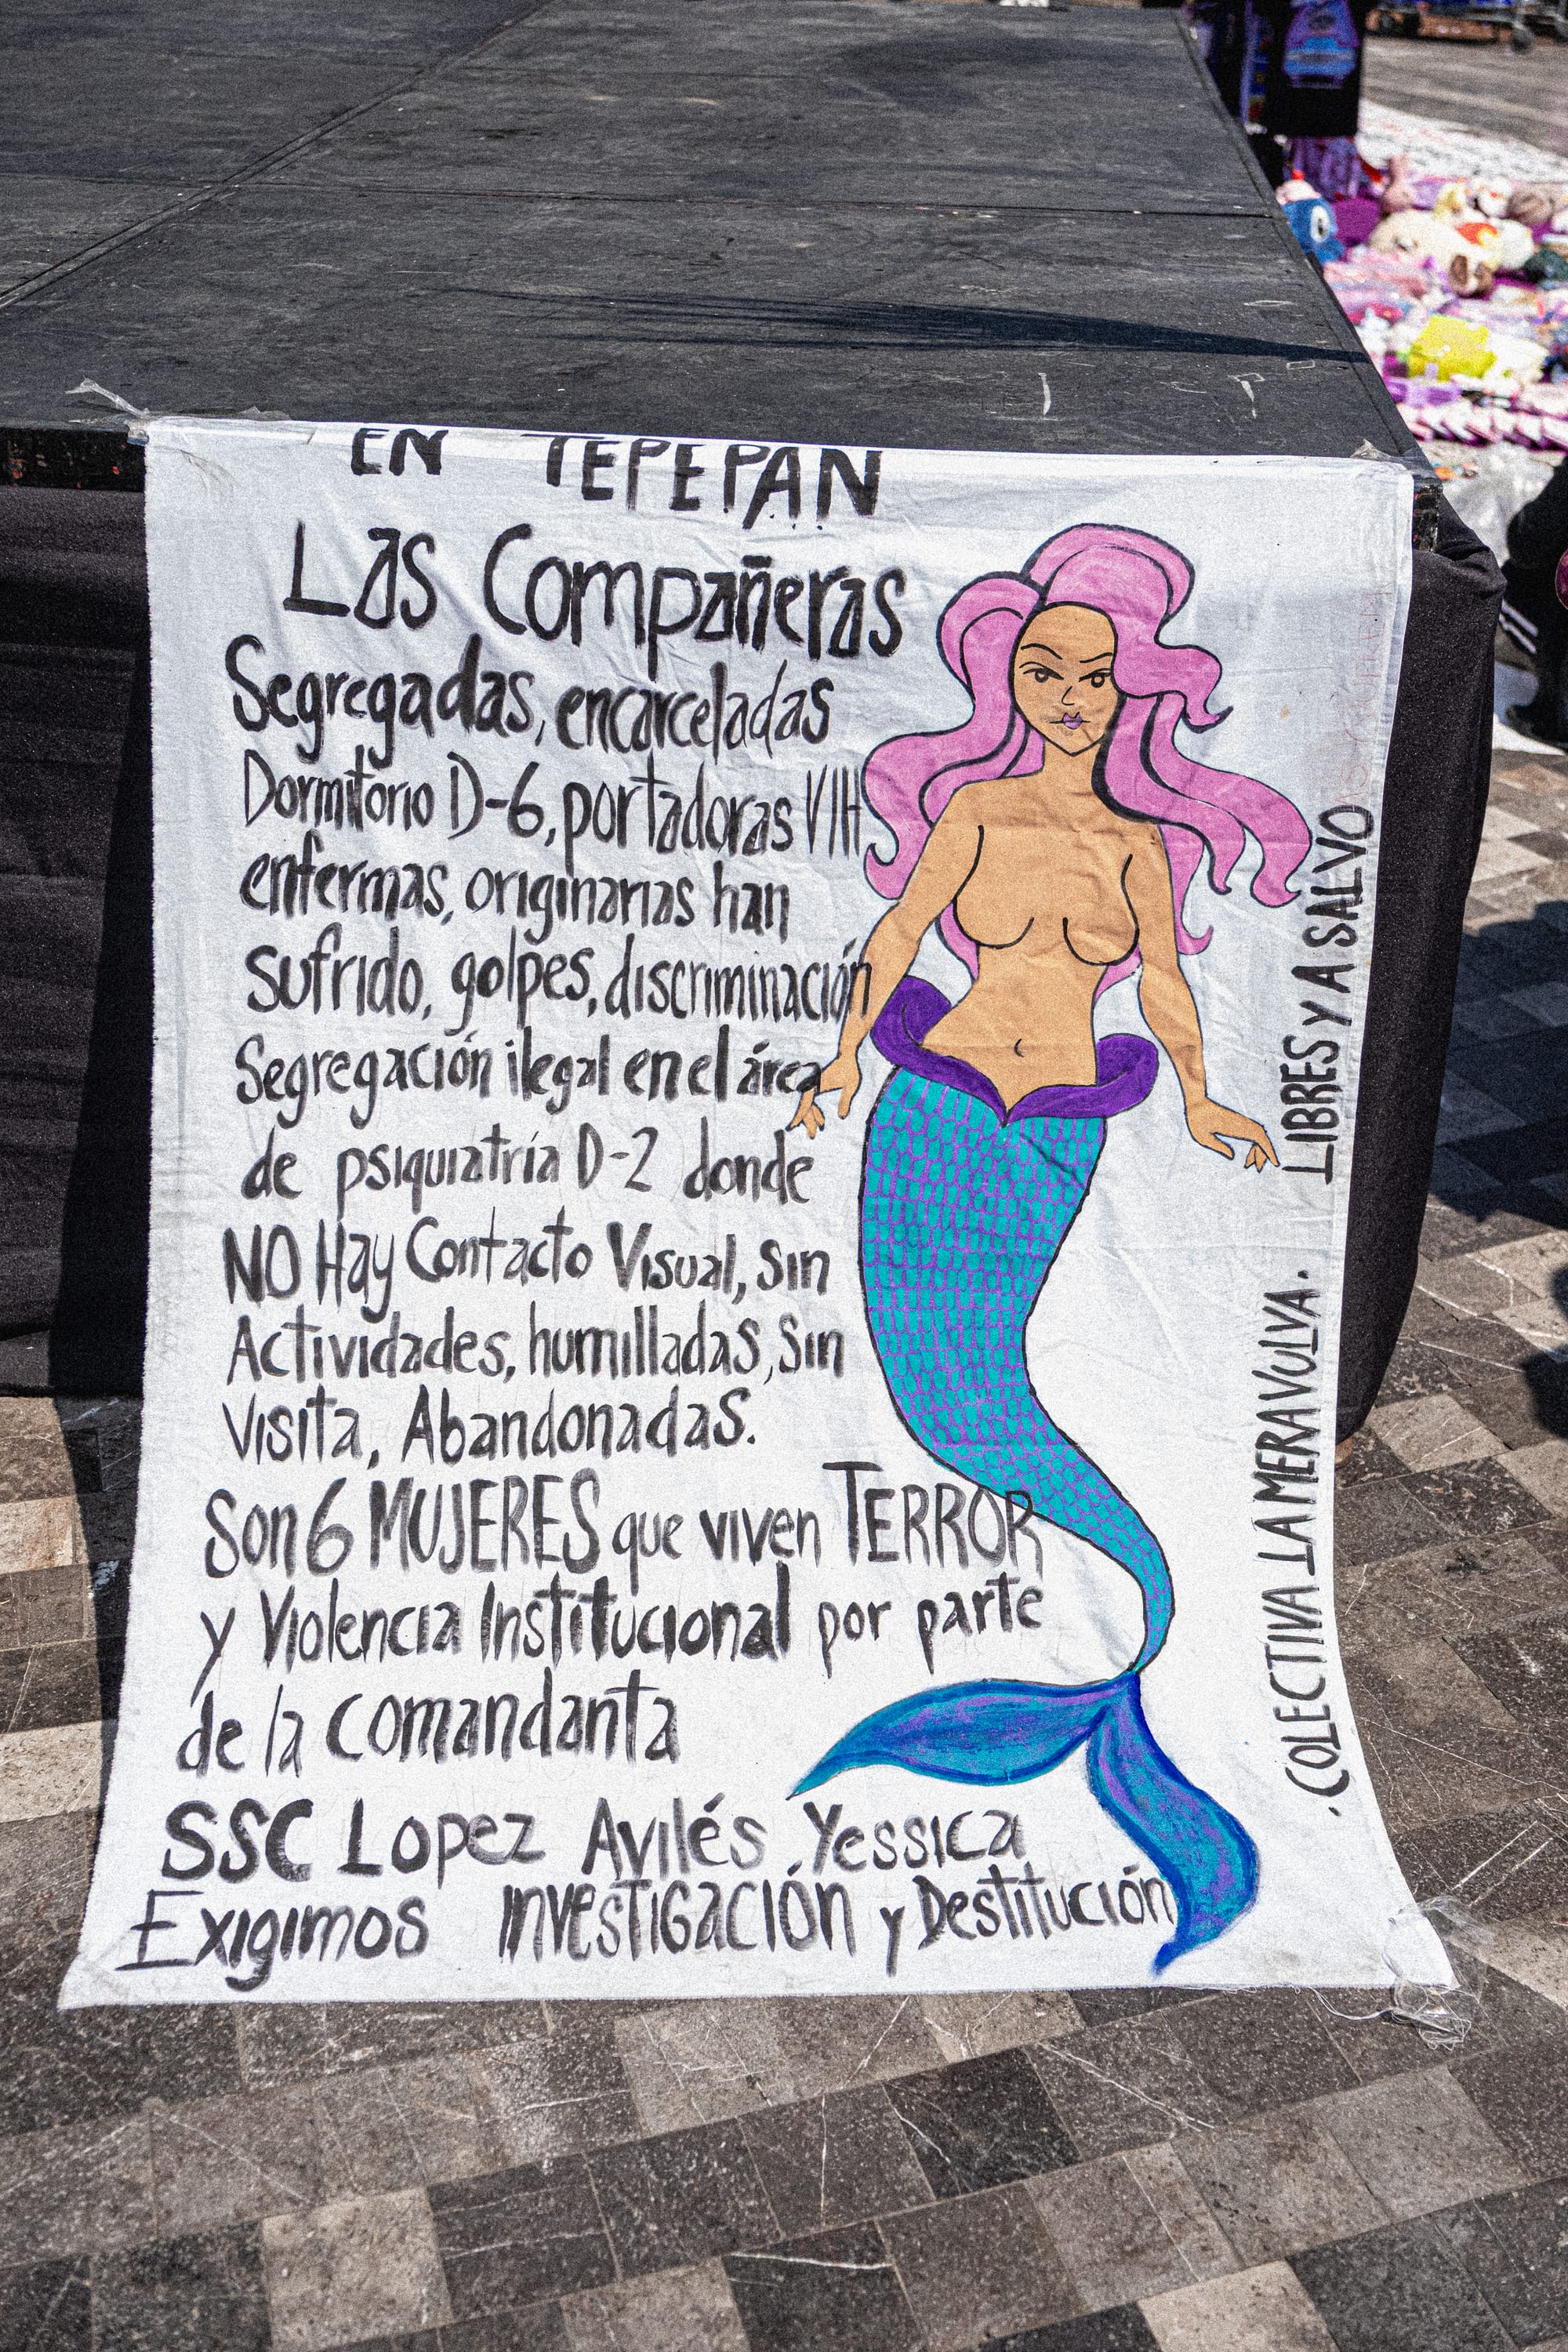 EN TEPEPAN
Las Compañeras
Segregadas, encarceladas
Dormitorio D-6, portadoras VIH
enfermas, originarias han
sufrido, golpes, discriminación
Segregación ilegal en el área
de psiquiatría D-2 donde
NO Hay Contacto Visual, sin
Actividades, humilladas, sin
visita, Abandonadas.
Son 6 MUJERES que viven TERROR
y Violencia Institucional por parte
de la comandanta
SSC Lopez Avilés Yessica
Exigimos INVESTIGACIÓN y Destitución
LIBRES Y A SALVO
.COLECTIVA LA MERA VULVA.